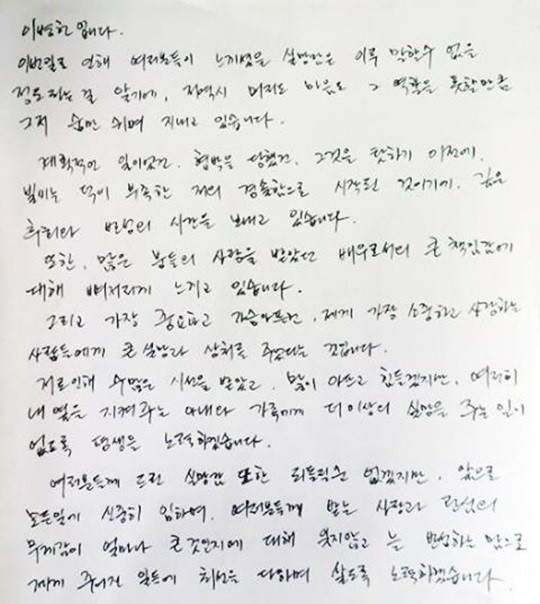 이병헌 입니다.
이번일로 인해 여러분들이 느끼셨을 실망감은 이루 말할수 없을
정도라는걸 알기에, 저역시 머리도 마음도 그 역할을 못할만큼
그저 숨만 쉬며 지내고 있습니다.
계획적인 일이었건, 협박을 당했건, 그것을 탓하기 이전에,
빌미는 덕이 부족한 저의 경솔함으로 시작된 것이기에, 깊은
후회와 반성의 시간을 보내고 있습니다.
또한, 많은 분들의 사랑을 받았던 배우로서의 큰 책임감에
대해 뼈저리게 느끼고 있습니다.
그리고 가장 중요하고 가슴아프건, 제게 가장 소중하고 사랑하는
사람들에게 큰 실망과 상처를 주었다는 것입니다.
저로인해 수많은 시선을 받았고, 많이 아프고 힘들겠지만, 여전히
내 옆을 지켜주는 아내와 가족에게 더 이상의 실망을 주는 일이
없도록 평생을 노력하겠습니다.
여러분들께 드린 실망감 또한 되돌릴순 없겠지만, 앞으로
모든일에 신중히 임하며, 여러분들께 받는 사랑과 관심의
무게감이 얼마나 큰 것인지에 대해 잊지않고 늘 반성하는 맘으로
제게 주어진 일들에 최선을 다하며 살도록 노력하겠습니다.